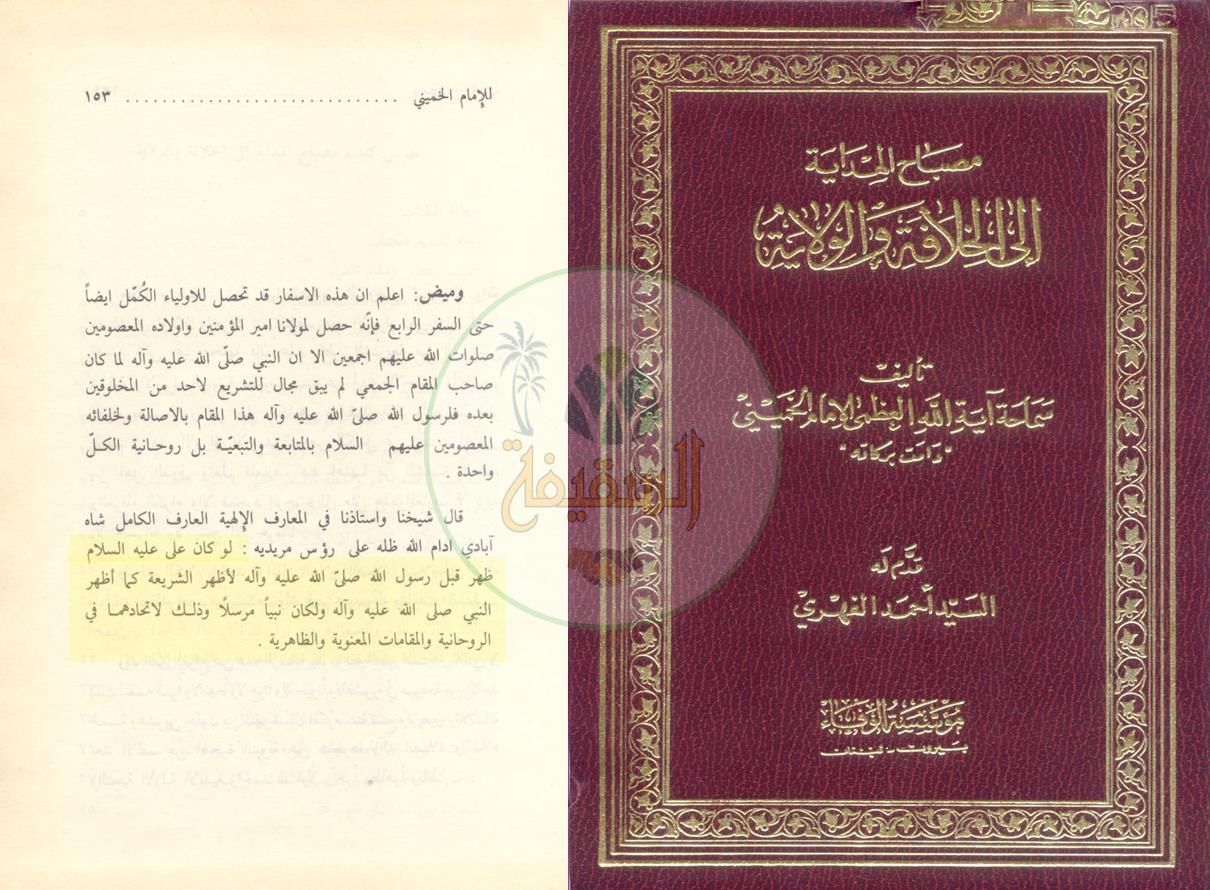 للإمام الخميني .............................. ١٥٣
وميض: اعلم ان هذه الاسفار قد تحصل للاولياء الكُمّل ايضاً
حتى السفر الرابع فإنّه حصل لمولانا امير المؤمنين واولاده المعصومين
صلوات الله عليهم اجمعين الا ان النبي صلّى الله عليه وآله لما كان
صاحب المقام الجمعي لم يبق مجال للتشريع لاحد من المخلوقين
بعده فلرسول الله صلىّ الله عليه وآله هذا المقام بالاصالة ولخلفائه
المعصومين عليهم السلام بالمتابعة والتبعيّة بل روحانية الكلّ
واحدة .
قال شيخنا واستاذنا في المعارف الإلهية العارف الكامل شاه
آبادي ادام الله ظله على رؤس مريديه : لو كان علي عليه السلام
ظهر قبل رسول الله صلىّ الله عليه وآله لأظهر الشريعة كما أظهر
النبي صلى الله عليه وآله ولكان نبياً مرسلًا وذلك لاتحادهما في
الروحانية والمقامات المعنوية والظاهرية .
مصباح الهداية
إلى الخلافة والولاية
تأليف
سماحة آية الله العظمى الإمام الخميني
"دامت بركاته"
قدّم له
السيّد أحمد الفهري
مؤسسة الوفاء
بيروت - لبنان
السقيفة